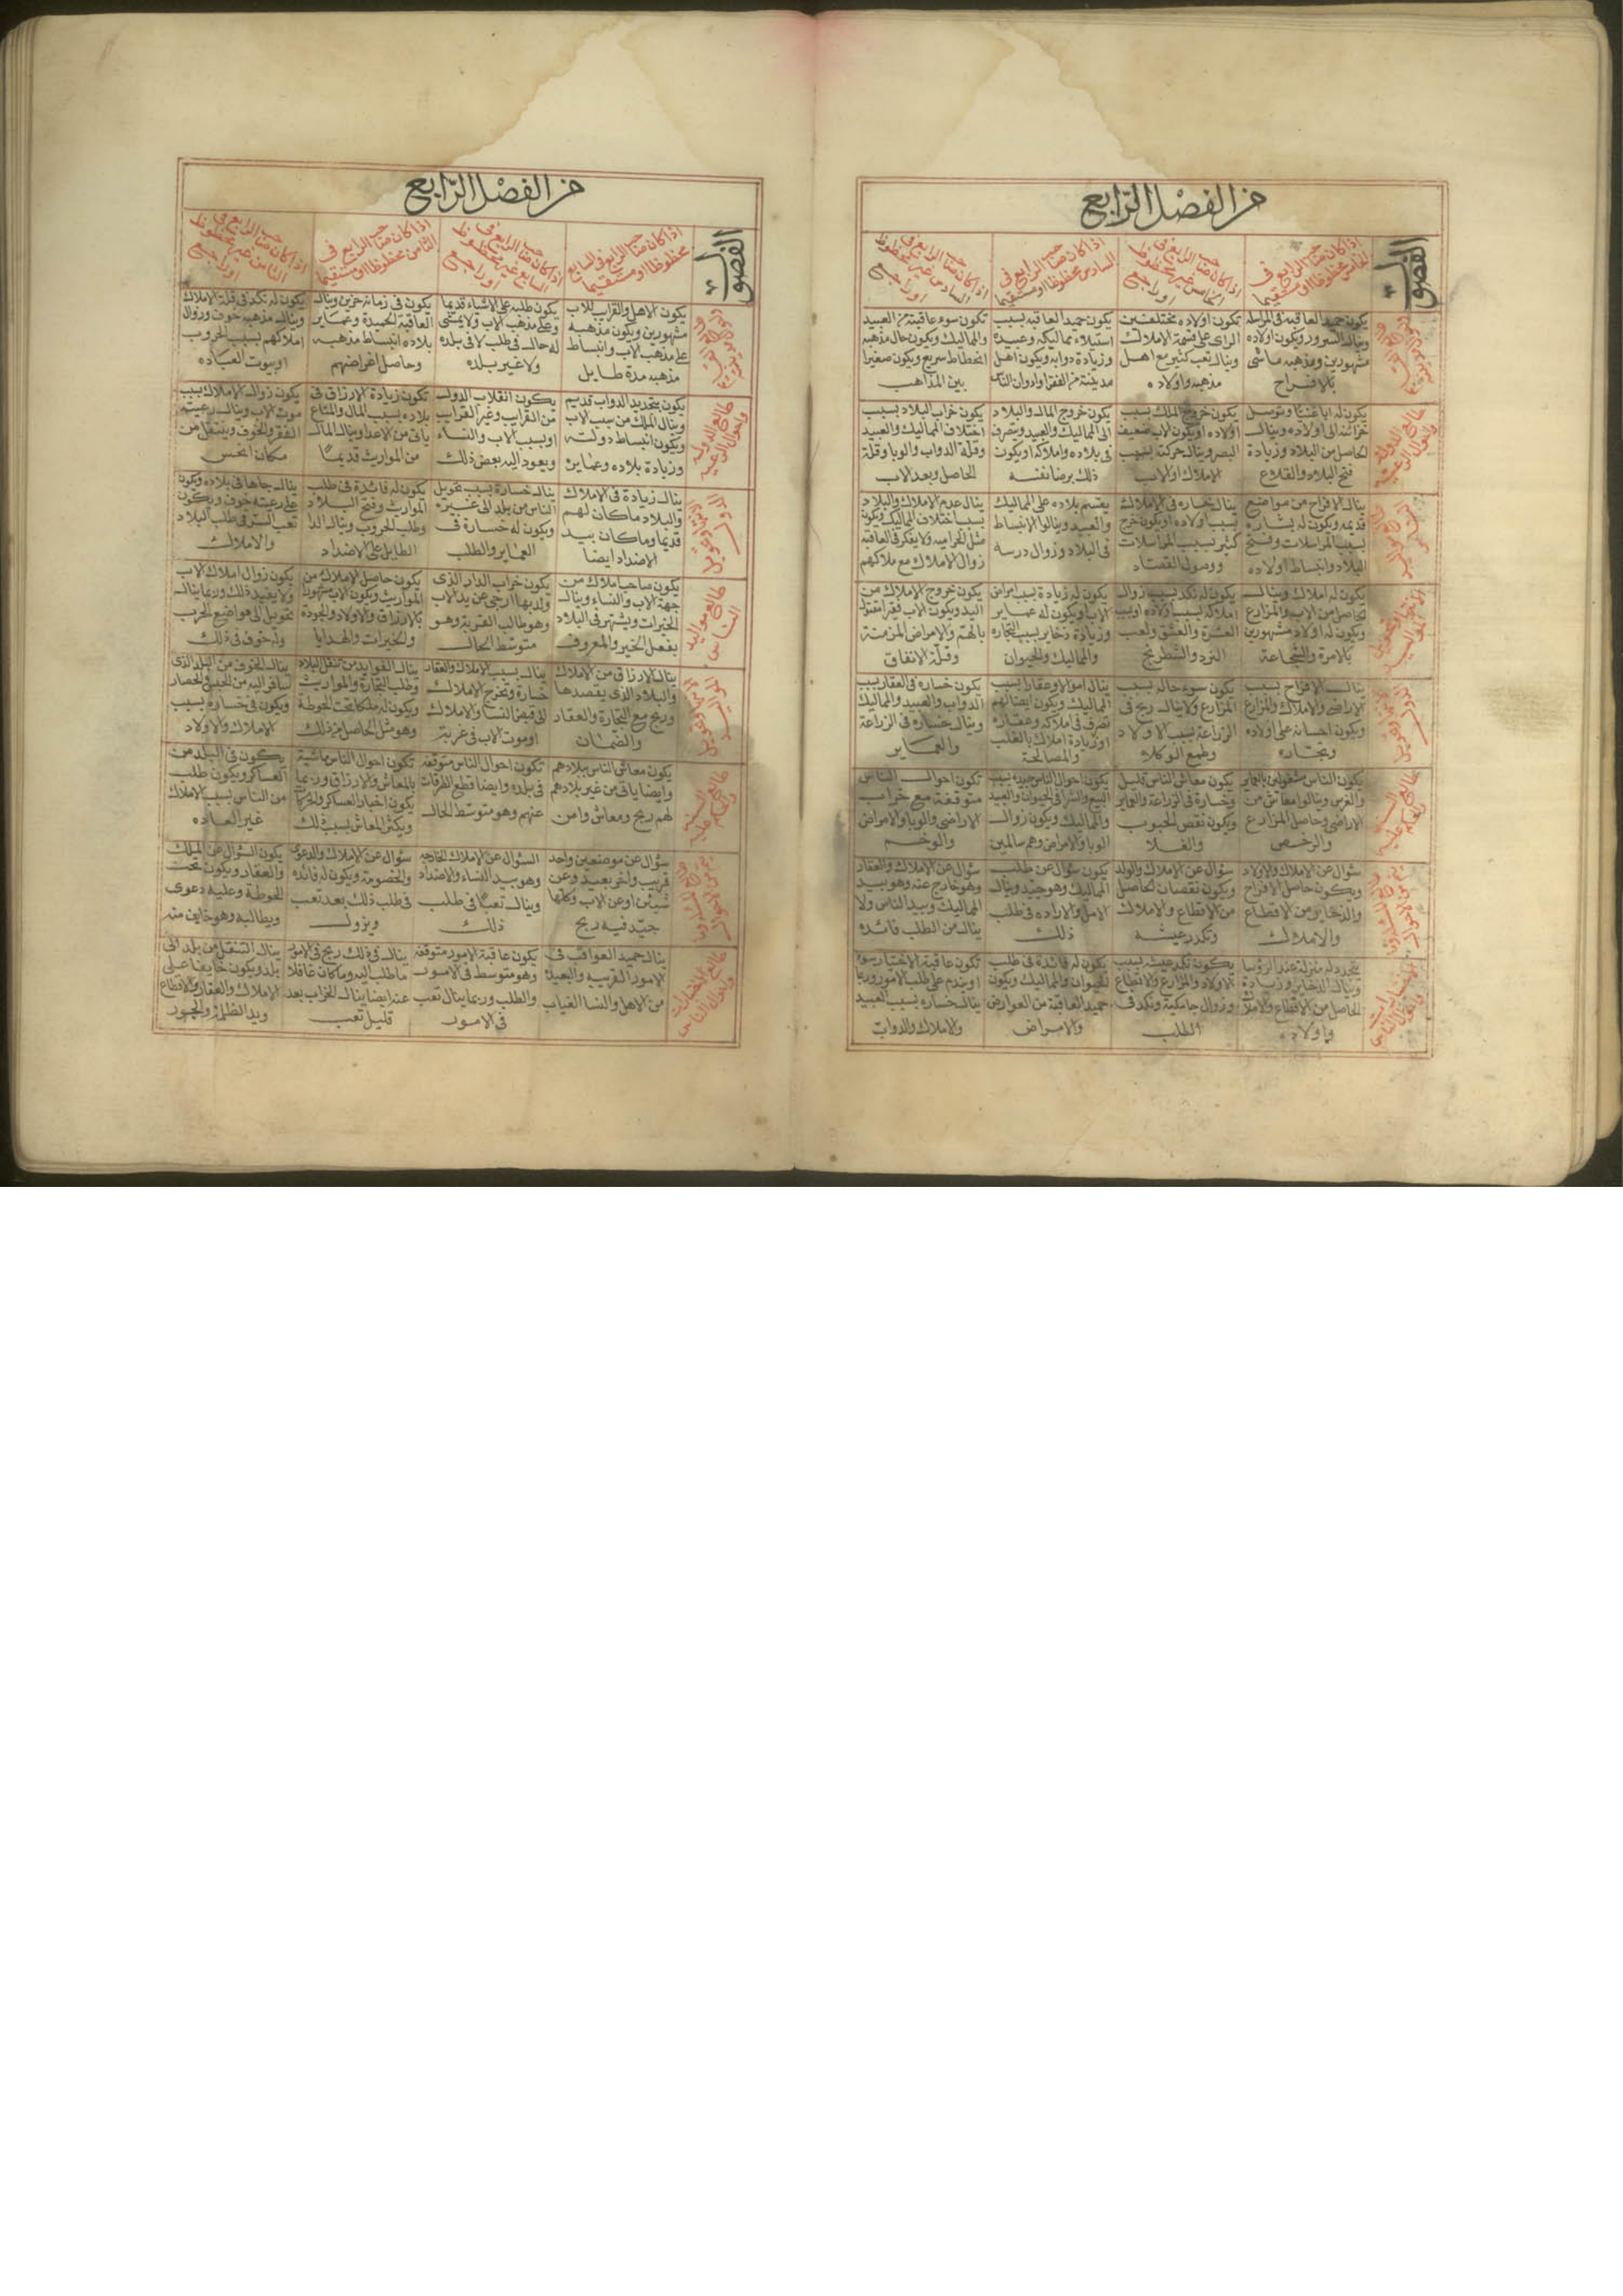 من الفصل الرابع
الفصول
اذا كان صاحب الرابع فى
الخامس محظوظا او مستقيما
اذا كان صاحب الرابع فى
الخامس غير محظوظ
او راجع
اذا كان صاحب الرابع فى
السادس محظوظا او مستقيما
اذا كان صاحب الرابع فى
السادس غير محظوظ
او راجع
يكون حميد العاقبة فى المراسلة
وينال السرور ويكون اولاده
مشهورين ومذهبه ماشى
بالافراح
تكون اولاده مختلفين
الراى على قسمة الاملاك
وينال تعب كثير مع اهل
مذهبه واولاده
يكون حميد العاقبة بسبب
استيلاء مماليكه وعبيده
وزيادة دوابه ويكون اهل
مدينته من الفقرا وادوان الناس
تكون سوء عاقبته من العبيد
والمماليك ويكون حال مذهبه
انحطاط سريع ويكون صغيرا
بين المذاهب
طالع الدولة
واحوال الرعية
يكون له ابا غنيا وتوصل
خزائنه الى اولاده وينال
الحاصل من البلاد وزيادة
فتح البلاد والقلاع
يكون خروج الملك بسبب
اولاده او يكون لاب ضعيف
البصر وينال حركة بسبب
الاملاك او الاب
يكون خروج المال والبلاد
الى المماليك والعبيد وتصرف
فى بلاده واملاكه او يكون
ذلك برضا نفسه
يكون خراب البلاد بسبب
اختلاف المماليك والعبيد
وقلة الدواب والوبا وقلة
الحاصل وبعد الاب
ينال الافراح من مواضع
قديمه ويكون له بشاره
بسبب المراسلات وفتح
البلاد وانبساط اولاده
ينال خساره فى الاملاك
بسبب اولاده او يكون خرج
كثير بسبب المراسلات
ووصول القصاد
يقسم بلاده على المماليك
والعبيد وينالوا الانبساط
فى البلاد وزوال درسه
ينال عدم الاملاك والبلاد
بسبب اختلاف المماليك ويكون
مثل الحراميه ولا يفكر فى العاقبة
زوال الاملاك مع ملاكهم
يكون له املاك وينال
الحاصل من الاب والمزارع
ويكون له اولاد مشهورين
بالامرة والشجاعة
يكون له نكد بسبب زوال
املاكه بسبب اولاده او بسبب
العشرة والعشق ولعب
النرد والشطرنج
يكون له زيادة بسبب امراض
الاب ويكون له عماير
وزيادة ذخاير بسبب التجاره
والمماليك والحيوان
يكون خروج الاملاك من
اليد ويكون الاب فقيرا مقتولا
بالهم والامراض المزمنة
وقلة الانفاق
ينال الافراح بسبب
الاراضى والاملاك والمزارع
ويكون احسانه على اولاده
وتجتاره
يكون سوء حاله بسبب
المزارع ولا ينال ربح فى
الزراعة بسبب الاولاد
وطمع الوكلاء
ينال اموالا وعقارا بسبب
المماليك ويكون ايضا لهم
تصرف فى املاكه وعقاره
او زيادة املاك بالغلب
والمصالحة
يكون خساره فى العقار بسبب
الدواب والعبيد والمماليك
وينال خساره فى الزراعة
والعماير
يكون الناس مشغولين بالعماير
والغرس وينالوا معاش من
الاراضى وحاصل المزارع
والرخص
يكون معاش الناس قليل
وخسارة فى الزراعة والعماير
ويكون نقص الحبوب
والغلا
يكون احوال الناس جيده بسبب
البيع والشرا فى الحيوان والعبيد
والمماليك ويكون زوال
الوبا والامراض وهم سالمين
تكون احوال الناس
متوقفة مع خراب
الاراضى والوبا والامراض
والوخم
سؤال عن الاملاك والاولاد
ويكون حاصل الافراح
والذخاير من الاقطاع
والاملاك
سؤال عن الاملاك والولد
ويكون نقصان الحاصل
من الاقطاع والاملاك
ونكد رعيته
يكون سؤال عن طلب
المماليك وهو جيد وينال
الامل والاراده فى طلب
ذلك
سؤال عن الاملاك والعقار
وهو خارج عنه وهو بيد
المماليك وبيد الناس ولا
ينال من الطلب فائدة
يتجدد له منزلة عند الرؤسا
وينال الذخاير وزيادة
الحاصل من الاقطاع والاملاك
واولاده
يكون نكد عيشه بسبب
الاولاد والمزارع والاقطاع
وزوال جامكيته ونكد فى
الطلب
يكون له فائدة فى طلب
الحيوان والمماليك ويكون
حميد العاقبة من العوارض
والامراض
تكون عاقبة الاختيار سوء
او يندم على طلب الامور وربما
ينال خساره بسبب العبيد
والاملاك والدواب
من الفصل الرابع
الفصول
اذا كان صاحب الرابع فى السابع
محظوظا او مستقيما
اذا كان صاحب الرابع فى
السابع غير محظوظ
او راجع
اذا كان صاحب الرابع فى
الثامن محظوظا او مستقيما
اذا كان صاحب الرابع فى
الثامن غير محظوظ
او راجع
يكون الاهل والقرايب للاب
مشهورين ويكون مذهبه
على مذهب الاب وانبساط
مذهبه مدة طايل
يكون طلبه على الاشياء قديما
وعلى مذهب الاب ولا يمشى
له حال فى طلب لا فى بلده
ولا غير بلده
يكون فى زمانه حزين وينال
العاقبة الحميدة وعماير
بلاده انبساط مذهبه
وحاصل اغراضهم
يكون له نكد فى قلة الاملاك
وينال مذهبه خوف وزوال
املاكهم بسبب الحروب
او بيوت العباده
طالع الدولة
واحوال الرعية
يكون بتجديد الدواب قديم
وينال الملك من سبب الاب
ويكون انبساط دولته
وزيادة بلاده وعمايره
يكون انقلاب الدول
من القرايب وغير القرايب
او بسبب الاب والنساء
ويعود اليه بعض ذلك
تكون زيادة الارزاق فى
بلاده بسبب المال والمتاع
ياتى من الاعدا وينال المال
من المواريث قديما
يكون زوال الاملاك بسبب
موت الاب وينال رعيته
الفقر والخوف وينتقل من
مكان انحس
ينال زيادة فى الاملاك
والبلاد ما كان لهم
قديما وما كان بيد
الاضداد ايضا
ينال خسارة بسبب تحويل
الناس من بلد الى غيره
ويكون له خسارة فى
العماير والطلب
يكون له فائدة فى طلب
المواريث وفتح البلاد
وطلب الحروب وينال الدا
الطايل على الاضداد
ينال جاها فى بلاده ويكون
على رعيته خوف ويكون
تعب السفر فى طلب البلاد
والاملاك
طالع مواليد
الناس
يكون صاحب املاك من
جهة الاب والنساء وينال
الخيرات ويشتهر فى البلاد
بفعل الخير والمعروف
يكون خراب الدار الذى
ولد بها ارجى عن يد الاب
وهو طالب الغربة وهو
متوسط الحال
يكون حاصل الاملاك من
المواريث ويكون الاب مشهورا
بالارزاق والاولاد والجودة
والخيرات والهدايا
يكون زوال املاك الاب
ولا يفيد ذلك وربما يناله
تحويل الى مواضع الحرب
وله خوف فى ذلك
ينال الارزاق من الاملاك
والبلاد الذى يقصدها
وربح مع التجارة والعقار
والضمان
ينال بسبب الاملاك والعقار
خسارة وتخرج الاملاك
الى قبض النسا والاملاك
او موت الاب فى غربته
ينال الفوايد من تنقل البلاد
وطلب التجارة والمواريث
ويكون له ملكا تحت الحوطة
وهو مثل الحاصل من ذلك
ينال الخوف من البلد الذى
يسافر اليه من الحبس والحصار
ويكون فى خسارة بسبب
الاملاك والاولاد
يكون معاش الناس ببلادهم
وايضا ياتى من غير بلادهم
لهم ربح ومعاش وامن
تكون احوال الناس متوقفة
فى بلده وايضا قطع الطرقات
عنهم وهو متوسط الحال
تكون احوال الناس ماشية
بالمعاش والارزاق وربما
يكون اخبار العساكر والحركات
ويكثر المعاش بسبب ذلك
يكون فى البلد من
العساكر ويكون طلب
من الناس بسبب الاملاك
غير العاده
سؤال عن موضعين واحد
قريب واخر بعيد وعن
شيئين او عن الاب وكلها
جيد فيه ربح
السؤال عن الاملاك الخارجه
وهو بيد النساء والاضداد
وينال تعبا فى طلب
ذلك
سؤال عن الاملاك والدعوى
والخصومة ويكون له فائدة
فى طلب ذلك بعد تعب
ويزول
يكون السؤال عن الملك
والعقار ويكون تحت
الحوطة وعليه دعوى
ويطالبه وهو خايف منه
طالع الاختيارات
واحوال الناس
ينال حميد العواقب فى
الامور القريب والبعيد
من الاهل والنسا الغياب
يكون عاقبة الامور متوقفة
وهو متوسط فى الامور
والطلب وربما ينال تعب
فى الامور
ينال فى ذلك ربح فى الامور
ما طلب اليه وما كان غافلا
عنه ايضا يناله الخراب بعد
قليل تعب
ينال التنقل من بلد الى
بلد ويكون خايفا على
الاملاك والعقار والاقطاع
وبيد الظلم والجور